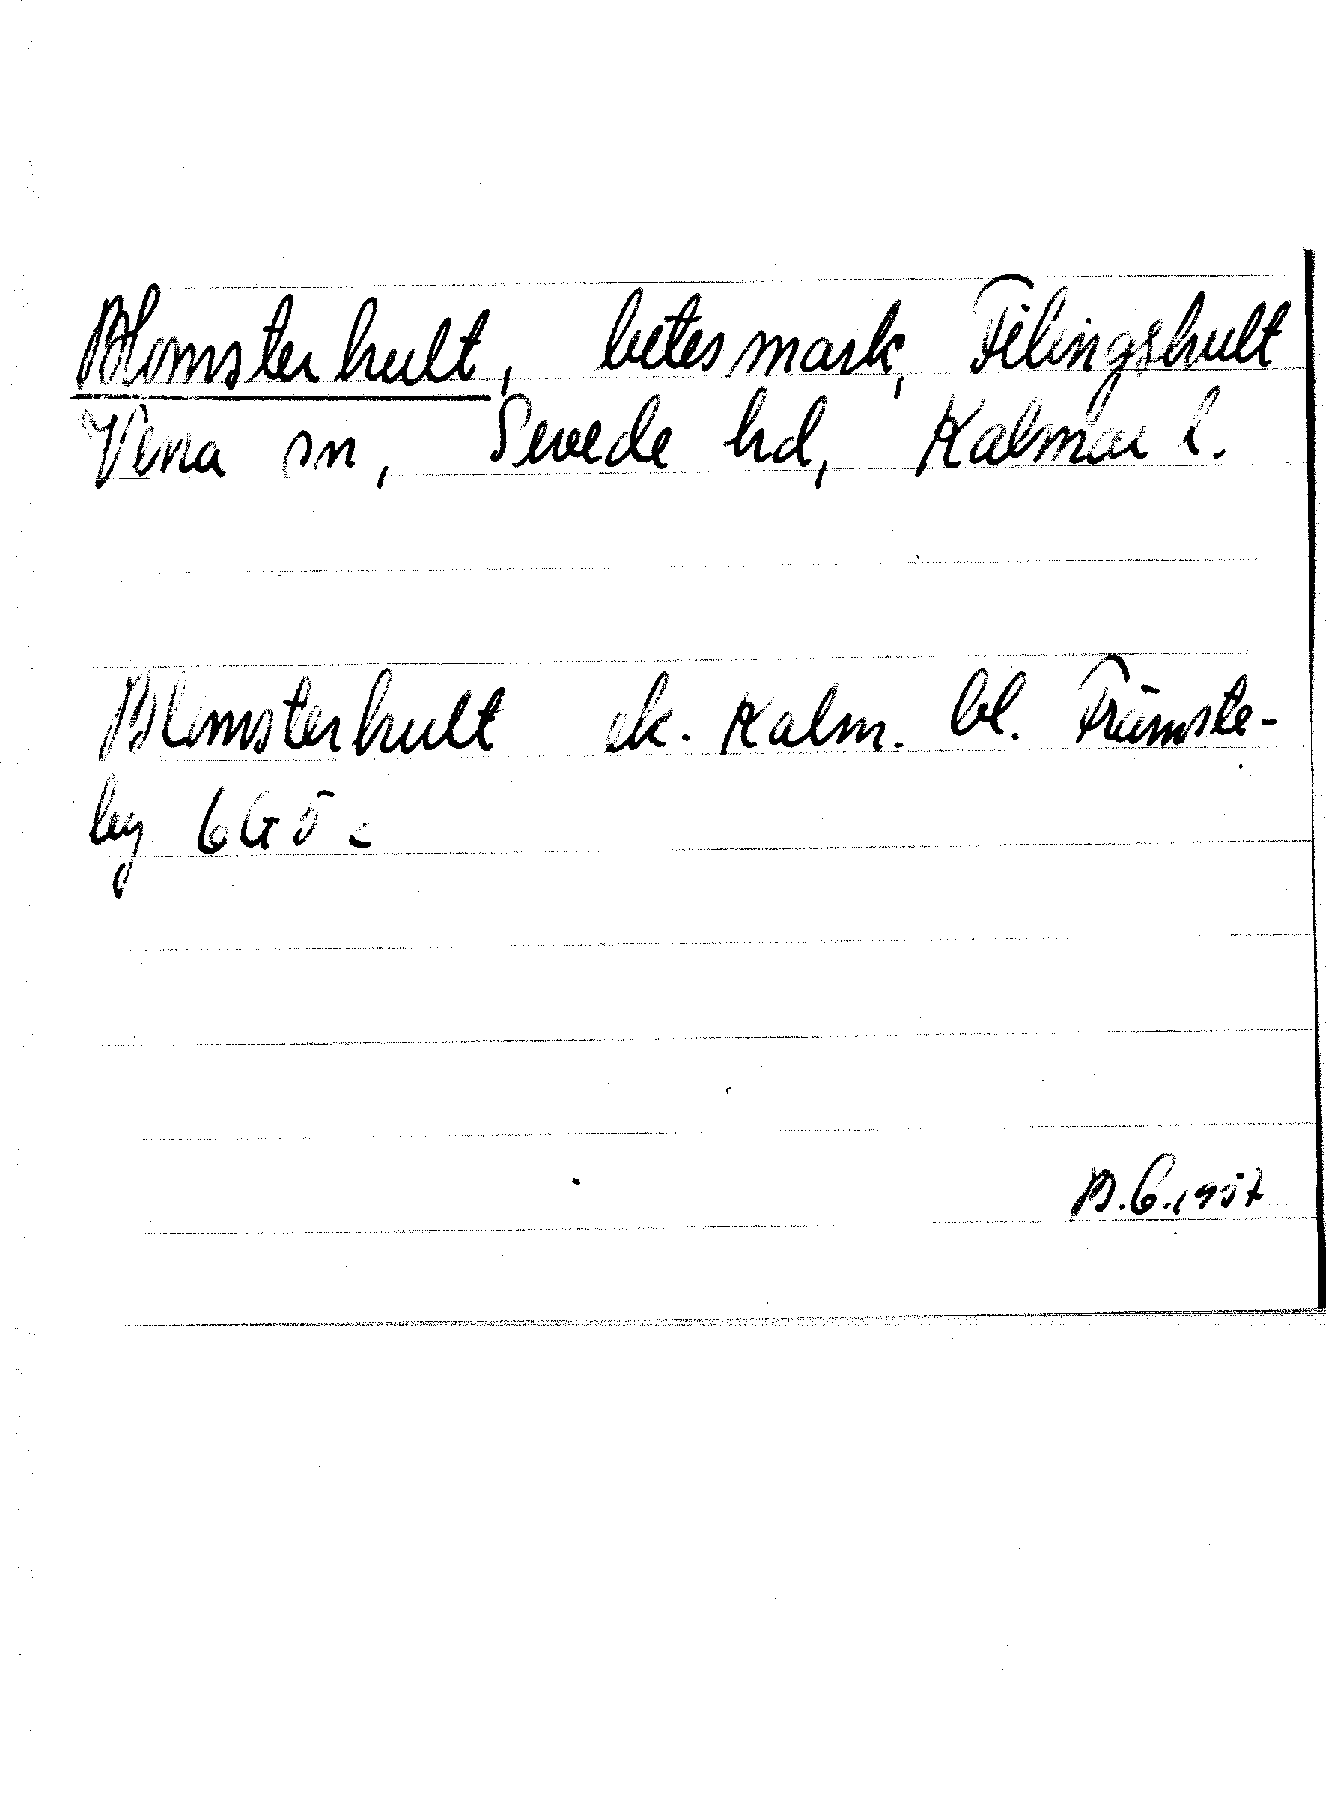 Blomsterhult, betesmark, Filingshult
Vena sn, Sevede hd, Kalmar l.
Blomsterhult ek. Kalm. bl. Främste-
by 6G5c
B.G.1957